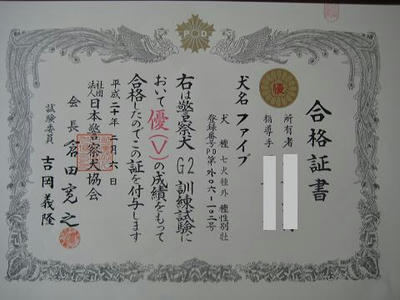 合格証書
所有者
指導手
優
犬名 ファイブ
犬種 七犬種外 種性別 牡
登録番号PD第外〇六-一〇二号
右は警察犬G2訓練試験に
おいて優(V)の成績をもって
合格したのでこの証を付与します
平成二十年二月六日
社団法人日本警察犬協会
会長 倉田寛之
試験委員 吉岡義隆